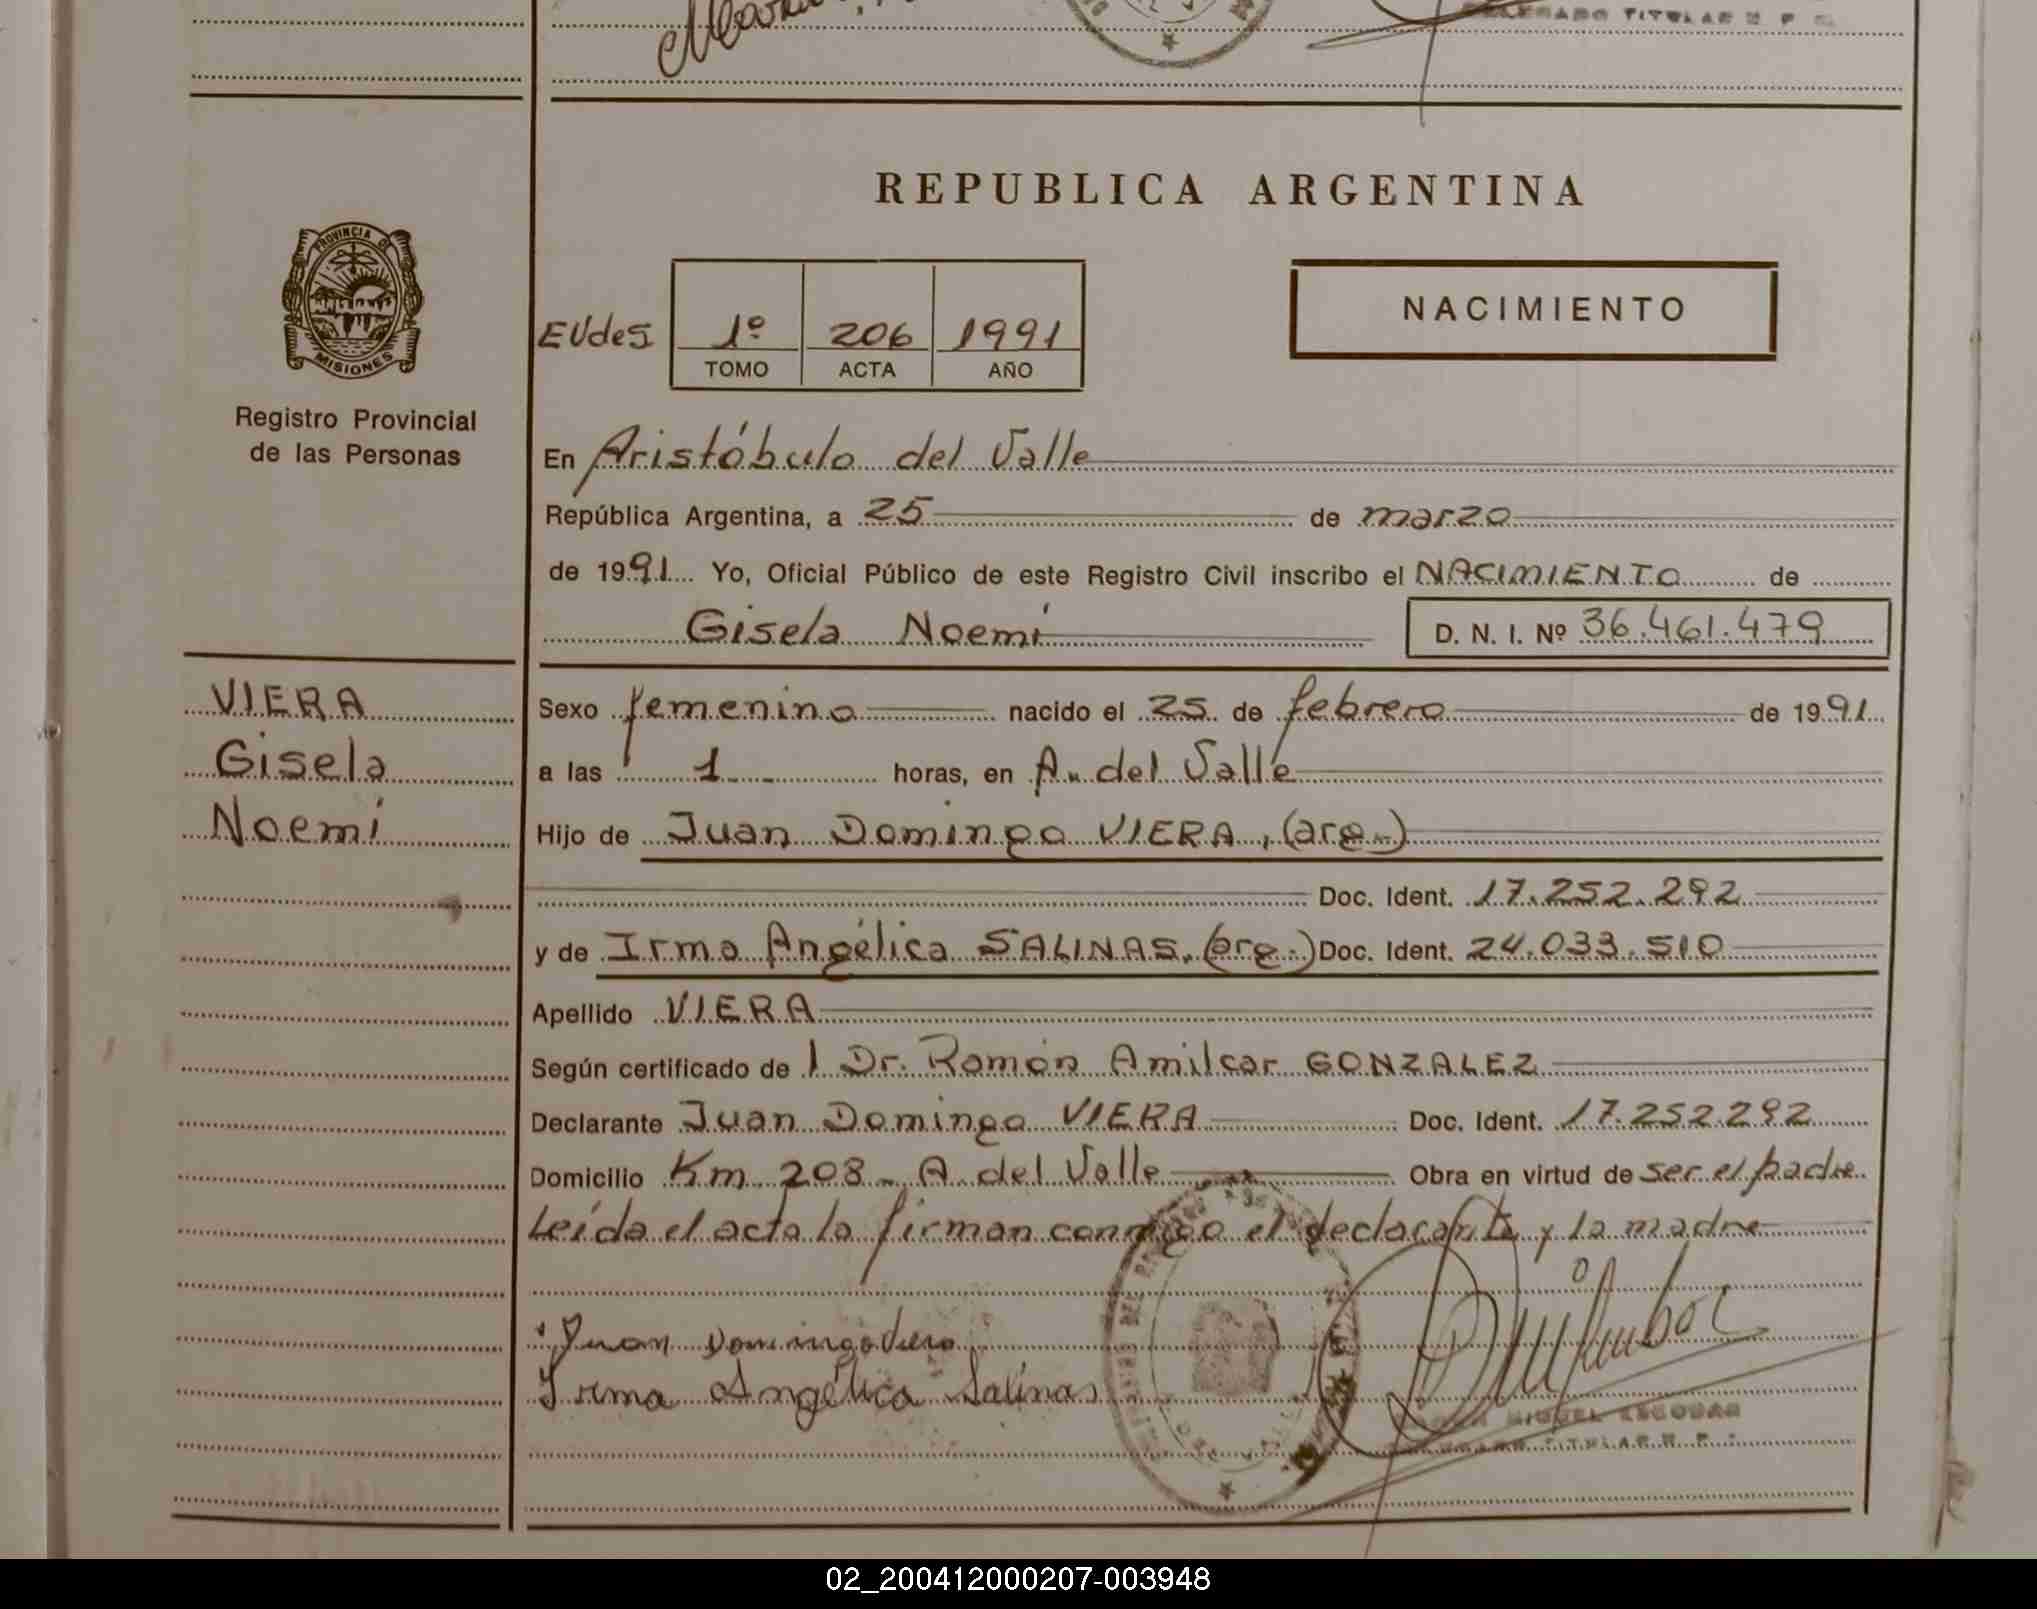 DELEGADO TITULAR R. P.
REPUBLICA ARGENTINA
PROVINCIA DE
MISIONES
Registro Provincial
de las Personas
EUdeS
1º 206 1991
TOMO ACTA AÑO
NACIMIENTO
En Aristóbulo del Valle
República Argentina, a 25 de marzo
de 1991 Yo, Oficial Público de este Registro Civil inscribo el NACIMIENTO de
Gisela Noemí D. N. I. Nº 36.461.479
VIERA
Gisela
Noemí
Sexo femenino nacido el 25 de febrero de 1991
a las 1 horas, en A. del Valle
Hijo de Juan Domingo VIERA, (arg.)
Doc. Ident. 17.252.292
y de Irma Angélica SALINAS, (arg.) Doc. Ident. 24.033.510
Apellido VIERA
Según certificado de l Dr. Ramón Amilcar GONZALEZ
Declarante Juan Domingo VIERA Doc. Ident. 17.252.292
Domicilio Km 208 - A. del Valle Obra en virtud de ser el padre
Leída el acta la firman conmigo el declarante y la madre
Juan Domingo Viera
Irma Angélica Salinas
MIGUEL ESCOBAR
TITULAR R. P.
02_200412000207-003948